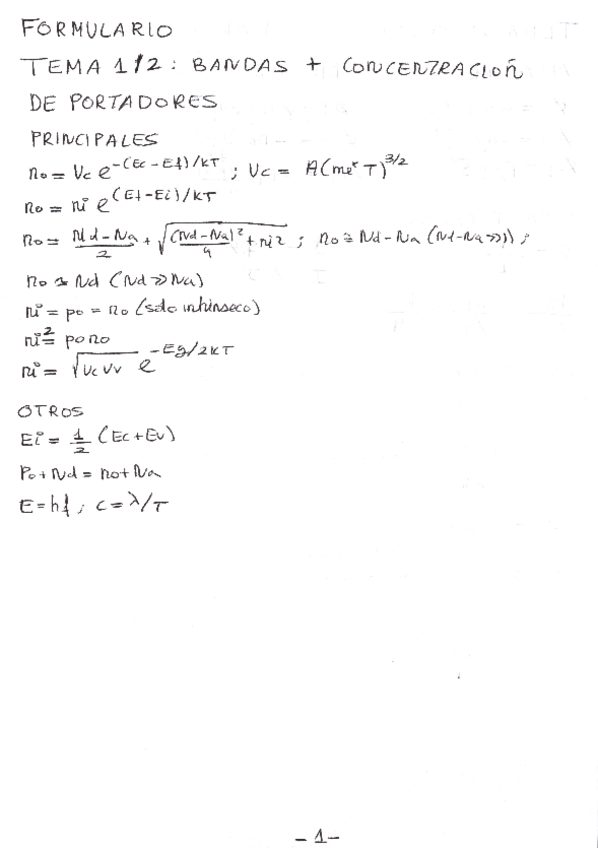 FORMULARIO
TEMA 1/2: BANDAS + CONCENTRACIOÑ
DE PORTADORES
PRINCIPALES
no = Vc e^-(Ec-Ef)/kT ; Vc = A(me* T)^3/2
no = ni e^(Ef-Ei)/kT
no = Nd-Na/2 + √((Nd-Na)²/4 + ni2) ; no ≅ Nd-Na (Nd-Na >>)) ;
no ≅ Nd (Nd >> Na)
ni = po = no (solo intrínseco)
ni² = pono
ni = √(Vc Vv) e^-Eg/2kT
OTROS
Ei = 1/2 (Ec+Ev)
Po + Nd = no + Na
E = hf ; c = λ/T
- 1 -